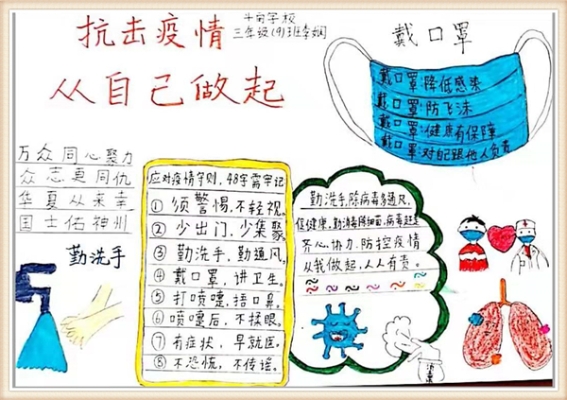 抗击疫情
从自己做起
三年级(9)班
戴口罩
戴口罩:降低感染
戴口罩:防飞沫
戴口罩:健康有保障
戴口罩:对自己跟他人负责
万众同心聚力
众志更同仇
华夏从来幸
国士佑神州
勤洗手
应对疫情守则,48字需牢记
①须警惕,不轻视。
②少出门,少集聚。
③勤洗手,勤通风。
④戴口罩,讲卫生。
⑤打喷嚏,捂口鼻。
⑥喷嚏后,不揉眼。
⑦有症状,早就医。
⑧不恐慌,不传谣。
勤洗手,除病毒多通风,
促健康,勤消毒得细菌,病毒赶走
齐心,协力,防控疫情
从我做起,人人有责。